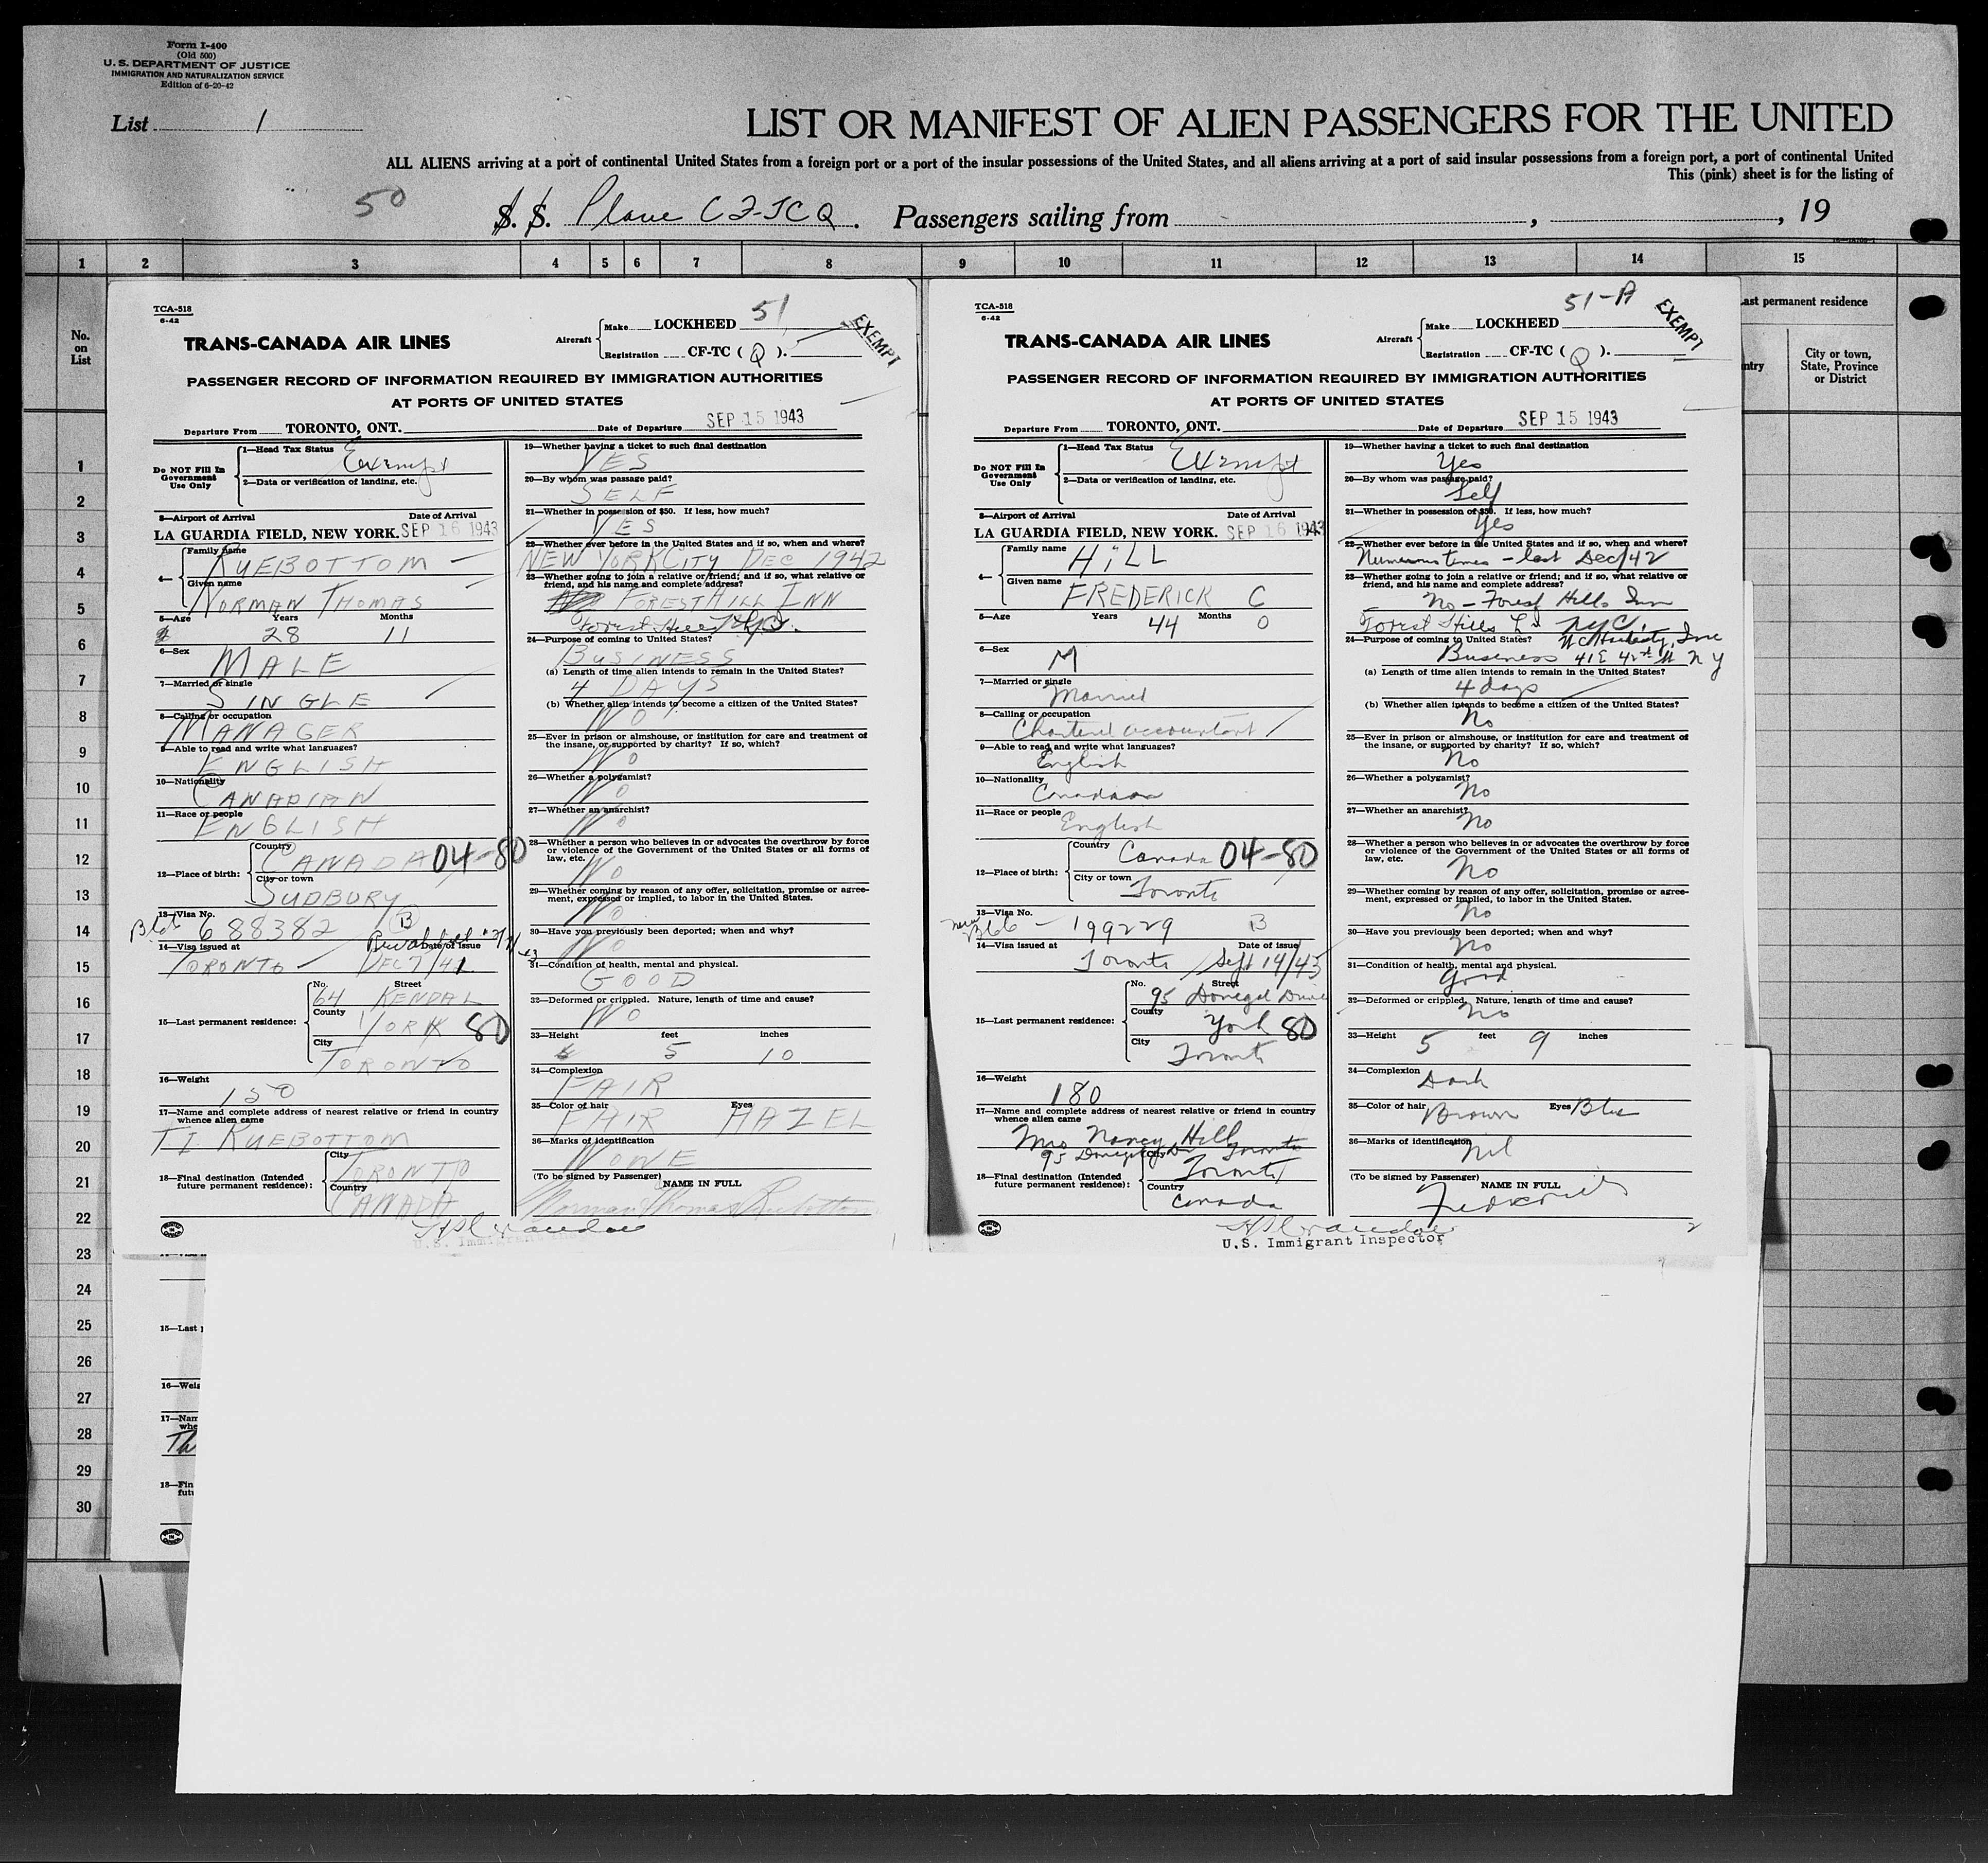 Form I-400
(Old 500)
U. S. DEPARTMENT OF JUSTICE
IMMIGRATION AND NATURALIZATION SERVICE
Edition of 6-20-42
List 1
LIST OR MANIFEST OF ALIEN PASSENGERS FOR THE UNITED
ALL ALIENS arriving at a port of continental United States from a foreign port or a port of the insular possessions of the United States, and all aliens arriving at a port of said insular possessions from a foreign port, a port of continental United
This (pink) sheet is for the listing of
50
S. S. Plane CF-TCQ. Passengers sailing from , , 19
1 2 3 4 5 6 7 8 9 10 11 12 13 14 15
No.
on
List
ast permanent residence
ntry
City or town,
State, Province
or District
1
2
3
4
5
6
7
8
9
10
11
12
13
14
15
16
17
18
19
20
21
22
23
24
25
26
27
28
29
30
TCA-518
6-42
51
TRANS-CANADA AIR LINES
Aircraft
Make LOCKHEED
Registration CF-TC ( Q ).
EXEMPT
PASSENGER RECORD OF INFORMATION REQUIRED BY IMMIGRATION AUTHORITIES
AT PORTS OF UNITED STATES
Departure From TORONTO, ONT. Date of Departure SEP 15 1943
Do NOT Fill In
Government
Use Only
1—Head Tax Status Exempt
2—Data or verification of landing, etc.
3—Airport of Arrival Date of Arrival
LA GUARDIA FIELD, NEW YORK. SEP 16 1943
4— Family name RUEBOTTOM
Given name NORMAN THOMAS
5—Age Years Months
28 11
6—Sex
MALE
7—Married or single
SINGLE
8—Calling or occupation
MANAGER
9—Able to read and write what languages?
ENGLISH
10—Nationality
CANADIAN
11—Race or people
ENGLISH
12—Place of birth:
Country CANADA 04-80
City or town
SUDBURY
13—Visa No.
688382 B
14—Visa issued at Date of issue
TORONTO DEC 7/41
15—Last permanent residence:
No. Street
64 KENDAL
County
YORK 80
City
TORONTO
16—Weight
150
17—Name and complete address of nearest relative or friend in country
whence alien came
T I RUEBOTTOM
18—Final destination (Intended
future permanent residence):
City
TORONTO
Country
CANADA
19—Whether having a ticket to such final destination
YES
20—By whom was passage paid?
SELF
21—Whether in possession of $50. If less, how much?
YES
22—Whether ever before in the United States and if so, when and where?
NEW YORK CITY DEC 1942
23—Whether going to join a relative or friend; and if so, what relative or
friend, and his name and complete address?
FOREST HILL INN
Forest Hill
24—Purpose of coming to United States?
BUSINESS
(a) Length of time alien intends to remain in the United States?
4 DAYS
(b) Whether alien intends to become a citizen of the United States?
NO
25—Ever in prison or almshouse, or institution for care and treatment of
the insane, or supported by charity? If so, which?
NO
26—Whether a polygamist?
NO
27—Whether an anarchist?
NO
28—Whether a person who believes in or advocates the overthrow by force
or violence of the Government of the United States or all forms of
law, etc.
NO
29—Whether coming by reason of any offer, solicitation, promise or agree-
ment, expressed or implied, to labor in the United States.
NO
30—Have you previously been deported; when and why?
NO
31—Condition of health, mental and physical.
GOOD
32—Deformed or crippled. Nature, length of time and cause?
NO
33—Height feet inches
5 10
34—Complexion
FAIR
35—Color of hair Eyes
FAIR HAZEL
36—Marks of identification
NONE
(To be signed by Passenger) NAME IN FULL
Norman Thomas Ruebottom
TCA-518
6-42
51-A
TRANS-CANADA AIR LINES
Aircraft
Make LOCKHEED
Registration CF-TC ( Q ).
EXEMPT
PASSENGER RECORD OF INFORMATION REQUIRED BY IMMIGRATION AUTHORITIES
AT PORTS OF UNITED STATES
Departure From TORONTO, ONT. Date of Departure SEP 15 1943
Do NOT Fill In
Government
Use Only
1—Head Tax Status Exempt
2—Data or verification of landing, etc.
3—Airport of Arrival Date of Arrival
LA GUARDIA FIELD, NEW YORK. SEP 16 1943
4— Family name HiLL
Given name
FREDERICK C
5—Age Years Months
44 0
6—Sex
M
7—Married or single
Married
8—Calling or occupation
Chartered accountant
9—Able to read and write what languages?
English
10—Nationality
Canadian
11—Race or people
English
12—Place of birth:
Country Canada 04-80
City or town
Toronto
13—Visa No.
199229 B
14—Visa issued at Date of issue
Toronto Sept 14/43
15—Last permanent residence:
No. Street
95 Donegal Drive
County
York 80
City
Toronto
16—Weight
180
17—Name and complete address of nearest relative or friend in country
whence alien came
Mrs Nancy Hill
95 Donegal Dr Toronto
18—Final destination (Intended
future permanent residence):
City
Toronto
Country
Canada
19—Whether having a ticket to such final destination
Yes
20—By whom was passage paid?
Self
21—Whether in possession of $50. If less, how much?
Yes
22—Whether ever before in the United States and if so, when and where?
Numerous times - last Dec/42
23—Whether going to join a relative or friend; and if so, what relative or
friend, and his name and complete address?
No - Forest Hills Inn
Forest Hills L.I. NYC.
24—Purpose of coming to United States?
Business 41 E 42nd St N Y
(a) Length of time alien intends to remain in the United States?
4 days
(b) Whether alien intends to become a citizen of the United States?
No
25—Ever in prison or almshouse, or institution for care and treatment of
the insane, or supported by charity? If so, which?
No
26—Whether a polygamist?
No
27—Whether an anarchist?
No
28—Whether a person who believes in or advocates the overthrow by force
or violence of the Government of the United States or all forms of
law, etc.
No
29—Whether coming by reason of any offer, solicitation, promise or agree-
ment, expressed or implied, to labor in the United States.
No
30—Have you previously been deported; when and why?
No
31—Condition of health, mental and physical.
Good
32—Deformed or crippled. Nature, length of time and cause?
No
33—Height 5 feet 9 inches
34—Complexion
Dark
35—Color of hair Brown Eyes Blue
36—Marks of identification
Nil
(To be signed by Passenger) NAME IN FULL
U.S. Immigrant Inspector
15—Last p
16—Weig
17—Nam
whe
Th
18—Fin
futu